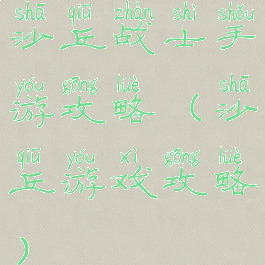 shā qiū zhàn shì shǒu
沙丘战士手
yóu gōng lüè shā
游攻略（沙
qiū yóu xì gōng lüè
丘游戏攻略
）